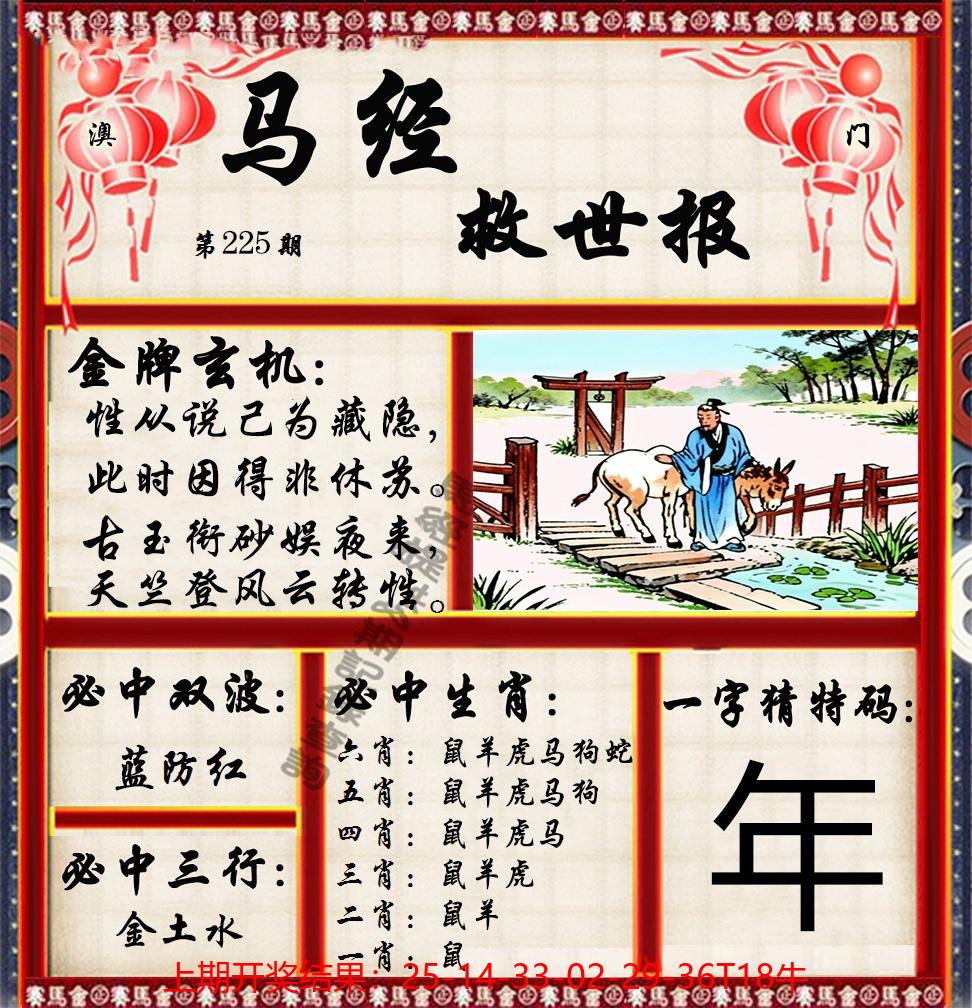 澳
门
马经
救世报
第225期
金牌玄机：
性从说己为藏隐，
此时因得非休苏。
古玉衔砂娱夜来，
天竺登风云转性。
必中双波：
蓝防红
必中三行：
金土水
必中生肖：
六肖：鼠羊虎马狗蛇
五肖：鼠羊虎马狗
四肖：鼠羊虎马
三肖：鼠羊虎
二肖：鼠羊
一肖：鼠
一字猜特码：
年
上期开奖结果：25-14-33-02-29-36T18牛